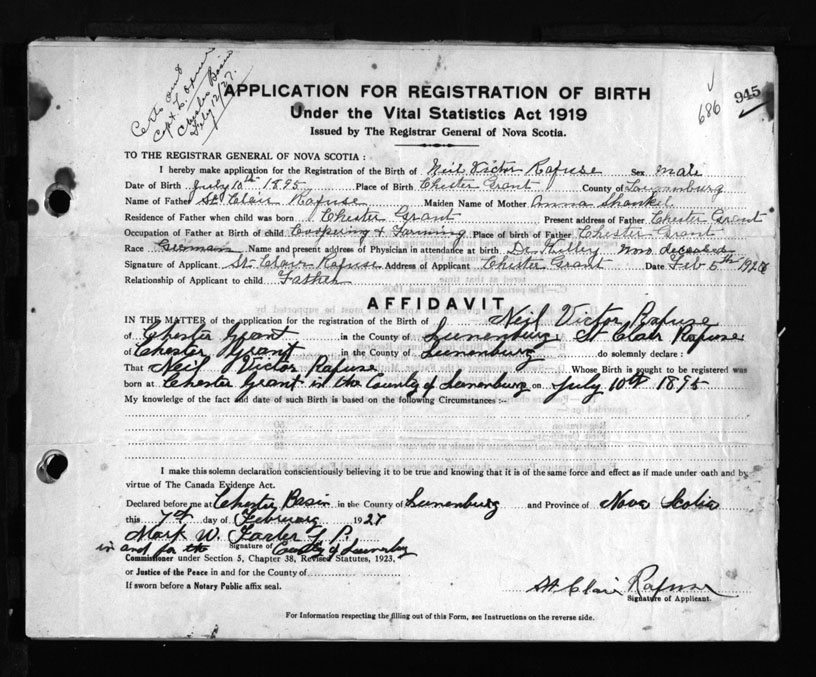 Chester Basin
July 12/27.
686
945
APPLICATION FOR REGISTRATION OF BIRTH
Under the Vital Statistics Act 1919
Issued by The Registrar General of Nova Scotia.
TO THE REGISTRAR GENERAL OF NOVA SCOTIA :
I hereby make application for the Registration of the Birth of Neil Victor Rafuse Sex male
Date of Birth July 10th 1895 Place of Birth Chester Grant County of Lunenburg
Name of Father St Clair Rafuse Maiden Name of Mother Anna
Residence of Father when child was born Chester Grant Present address of Father Chester Grant
Occupation of Father at Birth of child Coopering & Farming Place of birth of Father Chester Grant
Race German Name and present address of Physician in attendance at birth Dr. now deceased
Signature of Applicant St Clair Rafuse Address of Applicant Chester Grant Date Feb 5th 192
Relationship of Applicant to child Father
AFFIDAVIT
IN THE MATTER of the application for the registration of the Birth of Neil Victor Rafuse
of Chester Grant in the County of Lunenburg St Clair Rafuse
of Chester Grant in the County of Lunenburg do solemnly declare :
That Neil Victor Rafuse Whose Birth is sought to be registered was
born at Chester Grant in the County of Lunenburg on July 10th 1895
My knowledge of the fact and date of such Birth is based on the following Circumstances :-
I make this solemn declaration conscientiously believing it to be true and knowing that it is of the same force and effect as if made under oath and by
virtue of The Canada Evidence Act.
Declared before me at Chester Basin in the County of Lunenburg and Province of Nova Scotia
this 7th day of February 1927
Mark W. J. P.
in and for the Signature of County of Lunenburg
Commissioner under Section 5, Chapter 38, Revised Statutes, 1923,
or Justice of the Peace in and for the County of
If sworn before a Notary Public affix seal.
St Clair Rafuse
Signature of Applicant.
For Information respecting the filling out of this Form, see Instructions on the reverse side.